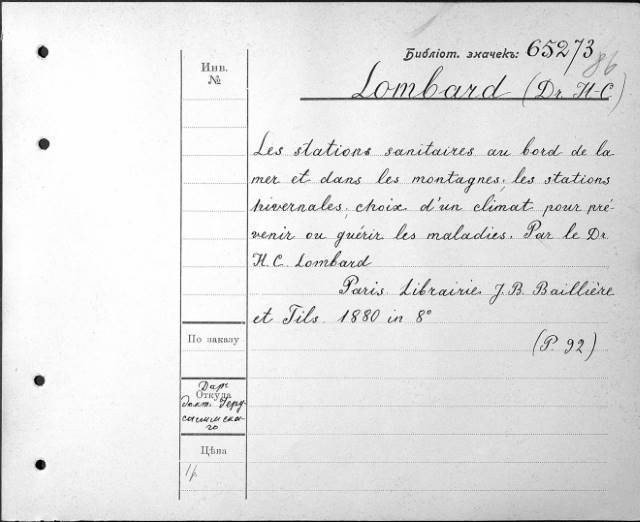 Библіот. значекъ: 65273
86
Инв.
№
Lombard (Dr. H-C)
Les stations sanitaires au bord de la
mer et dans les montagnes; les stations
hivernales; choix d'un climat pour pré-
venir ou guérir les maladies. Par le Dr
H. C. Lombard
Paris Librairie J. B. Baillière
et Fils 1880 in 8°
(P. 92)
По заказу
Даръ
Откуда
докт. Іеру-
салимска-
го
Цѣна
1р